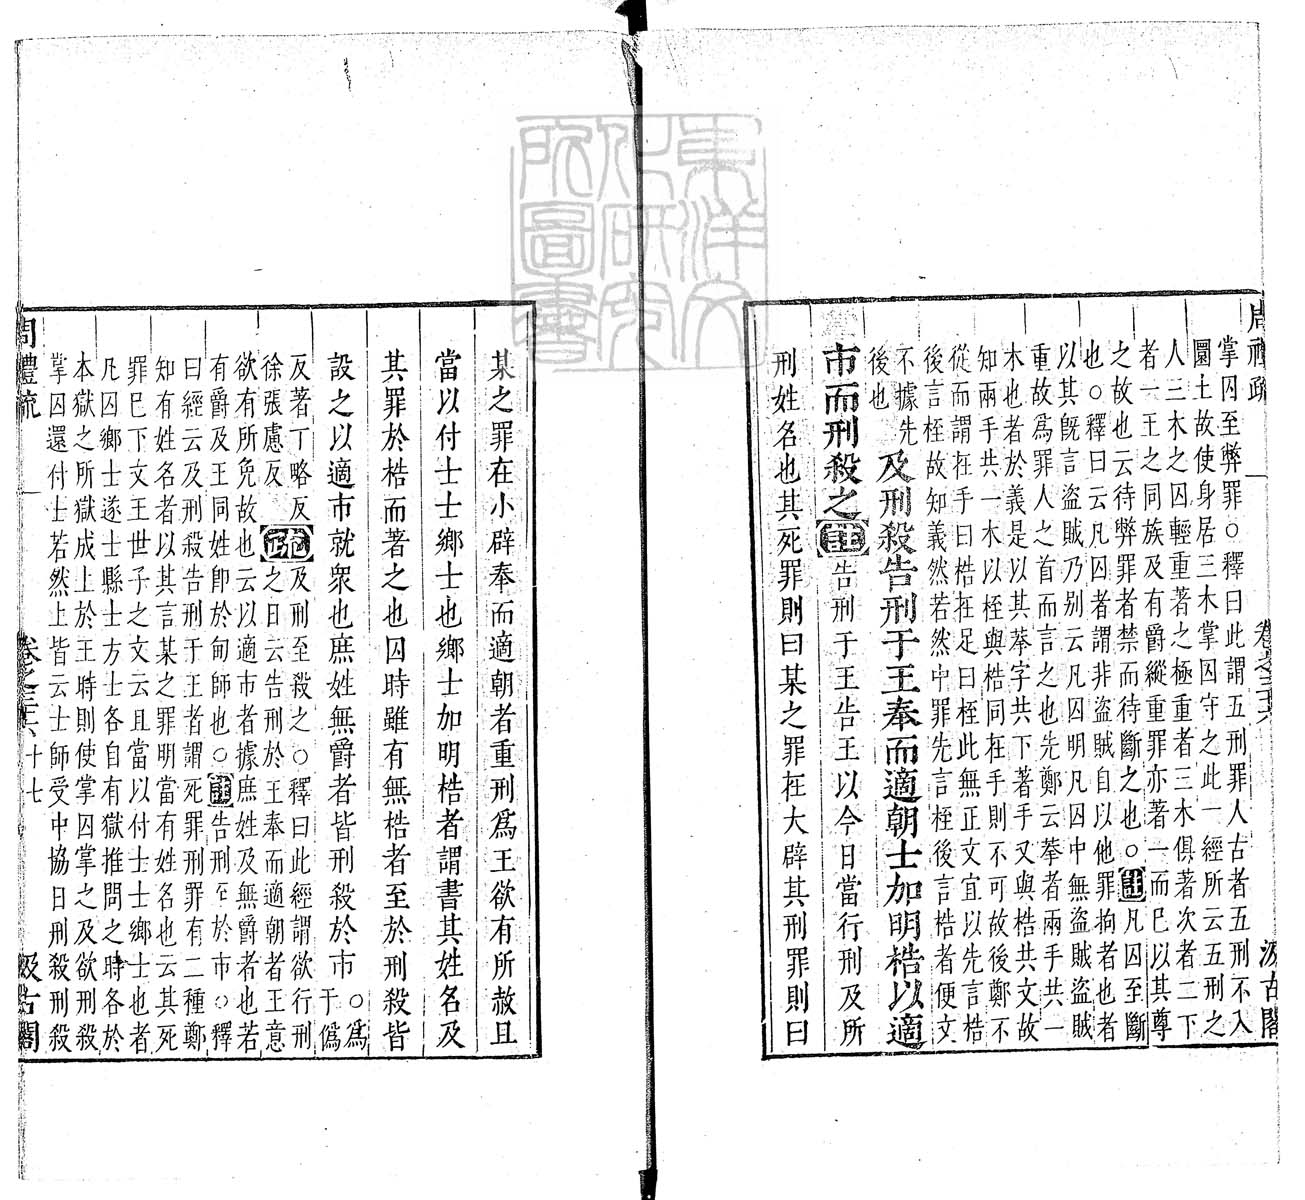 周禮疏 卷之三十六 汲古閣
掌囚至弊罪○釋曰此謂五刑罪人古者五刑不入
圜土故使身居三木掌囚守之此一經所云五刑之
人三木之囚輕重著之極重者三木俱著次者二下
者一王之同族及有爵縱重罪亦著一而已以其尊
之故也云待弊罪者禁而待斷之也○註凡囚至斷
也○釋曰云凡囚者謂非盜賊自以他罪拘者也者
以其旣言盜賊乃别云凡囚明凡囚中無盜賊盜賊
重故爲罪人之首而言之也先鄭云拲者兩手共一
木也者於義是以其拲字共下著手又與梏共文故
知兩手共一木以桎與梏同在手則不可故後鄭不
從而謂在手曰梏在足曰桎此無正文宜以先言梏
後言桎故知義然若然中罪先言桎後言梏者便文
不據先
後也
及刑殺告刑于王奉而適朝士加明梏以適
市而刑殺之註告刑于王告王以今日當行刑及所
刑姓名也其死罪則曰某之罪在大辟其刑罪則曰
某之罪在小辟奉而適朝者重刑爲王欲有所赦且
當以付士士鄉士也鄉士加明梏者謂書其姓名及
其罪於梏而著之也囚時雖有無梏者至於刑殺皆
設之以適市就衆也庶姓無爵者皆刑殺於市○爲
于僞
反著丁略反
徐張慮反
疏
及刑至殺之○釋曰此經謂欲行刑
之日云告刑於王奉而適朝者王意
欲有所免故也云以適市者據庶姓及無爵者也若
有爵及王同姓卽於甸師也○註告刑至於市○釋
曰經云及刑殺告刑于王者謂死罪刑罪有二種鄭
知有姓名者以其言某之罪明當有姓名也云其死
罪巳下文王世子之文云且當以付士士鄉士也者
凡囚鄉士遂士縣士方士各自有獄推問之時各於
本獄之所獄成上於王時則使掌囚掌之及欲刑殺
掌囚還付士若然上皆云士師受中協日刑殺刑殺
周禮疏 卷之三十六 十七 汲古閣
東洋文化研究所圖書